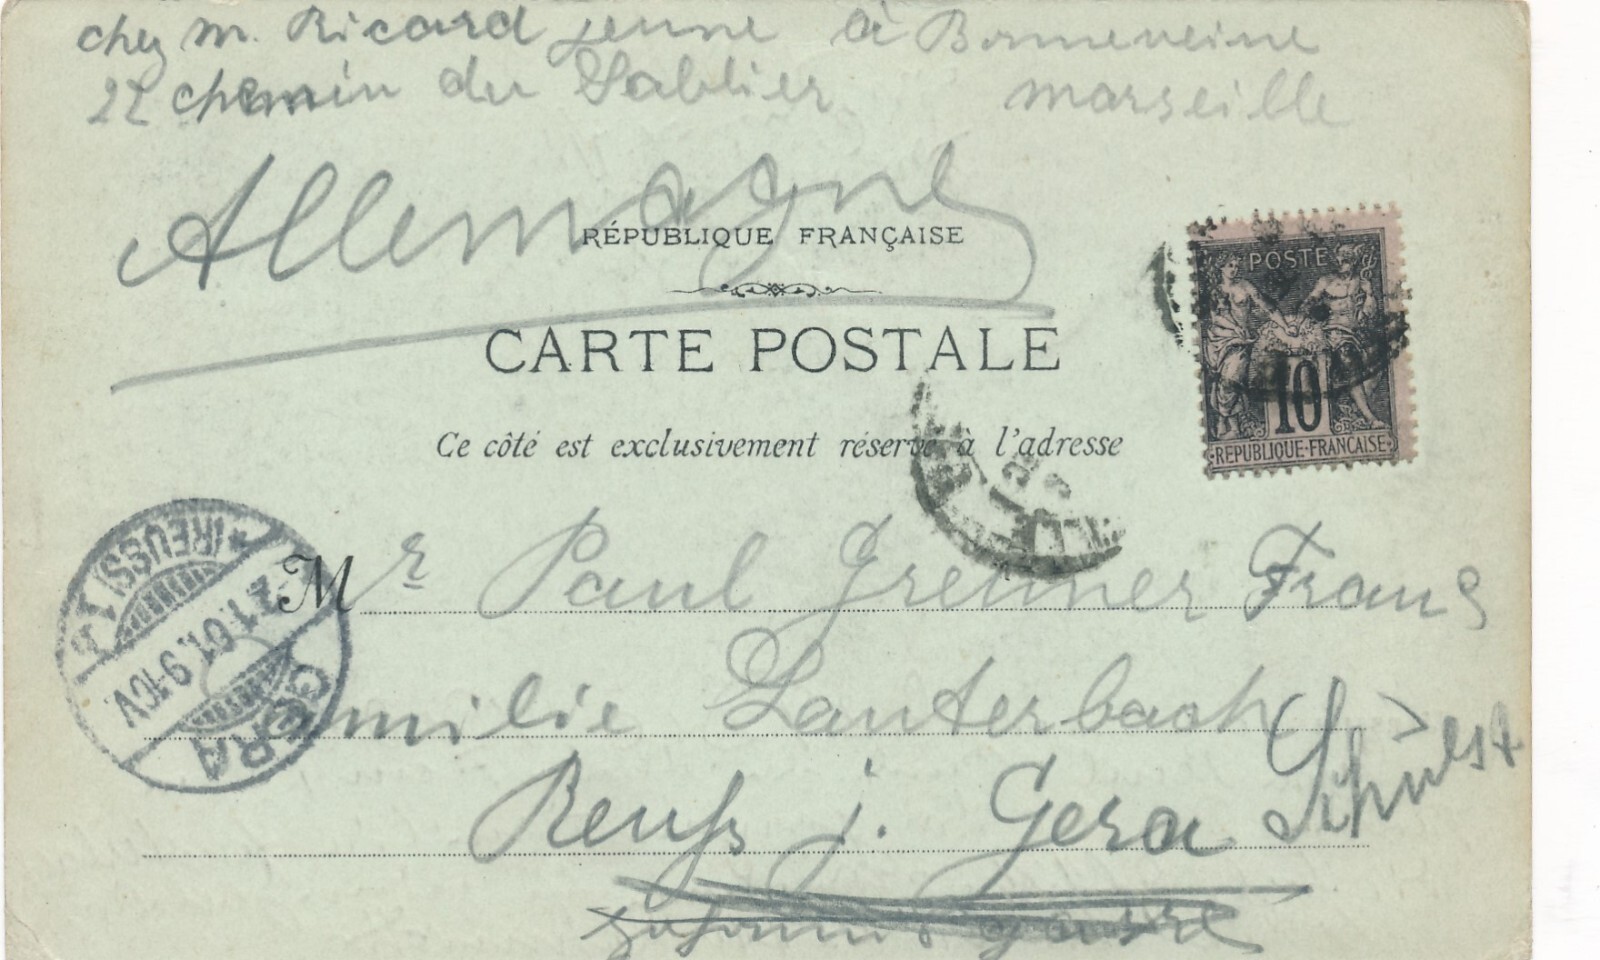 chez m. Ricard jeune à Bonneveine
22 chemin du Sablier marseille
Allemagne
RÉPUBLIQUE FRANÇAISE
CARTE POSTALE
Ce côté est exclusivement réservé à l'adresse
POSTE
10
REPUBLIQUE·FRANÇAISE
M r Paul Frans
milie Lauterbach
Reuß j. Gera
GERA
*(REUSS) 1